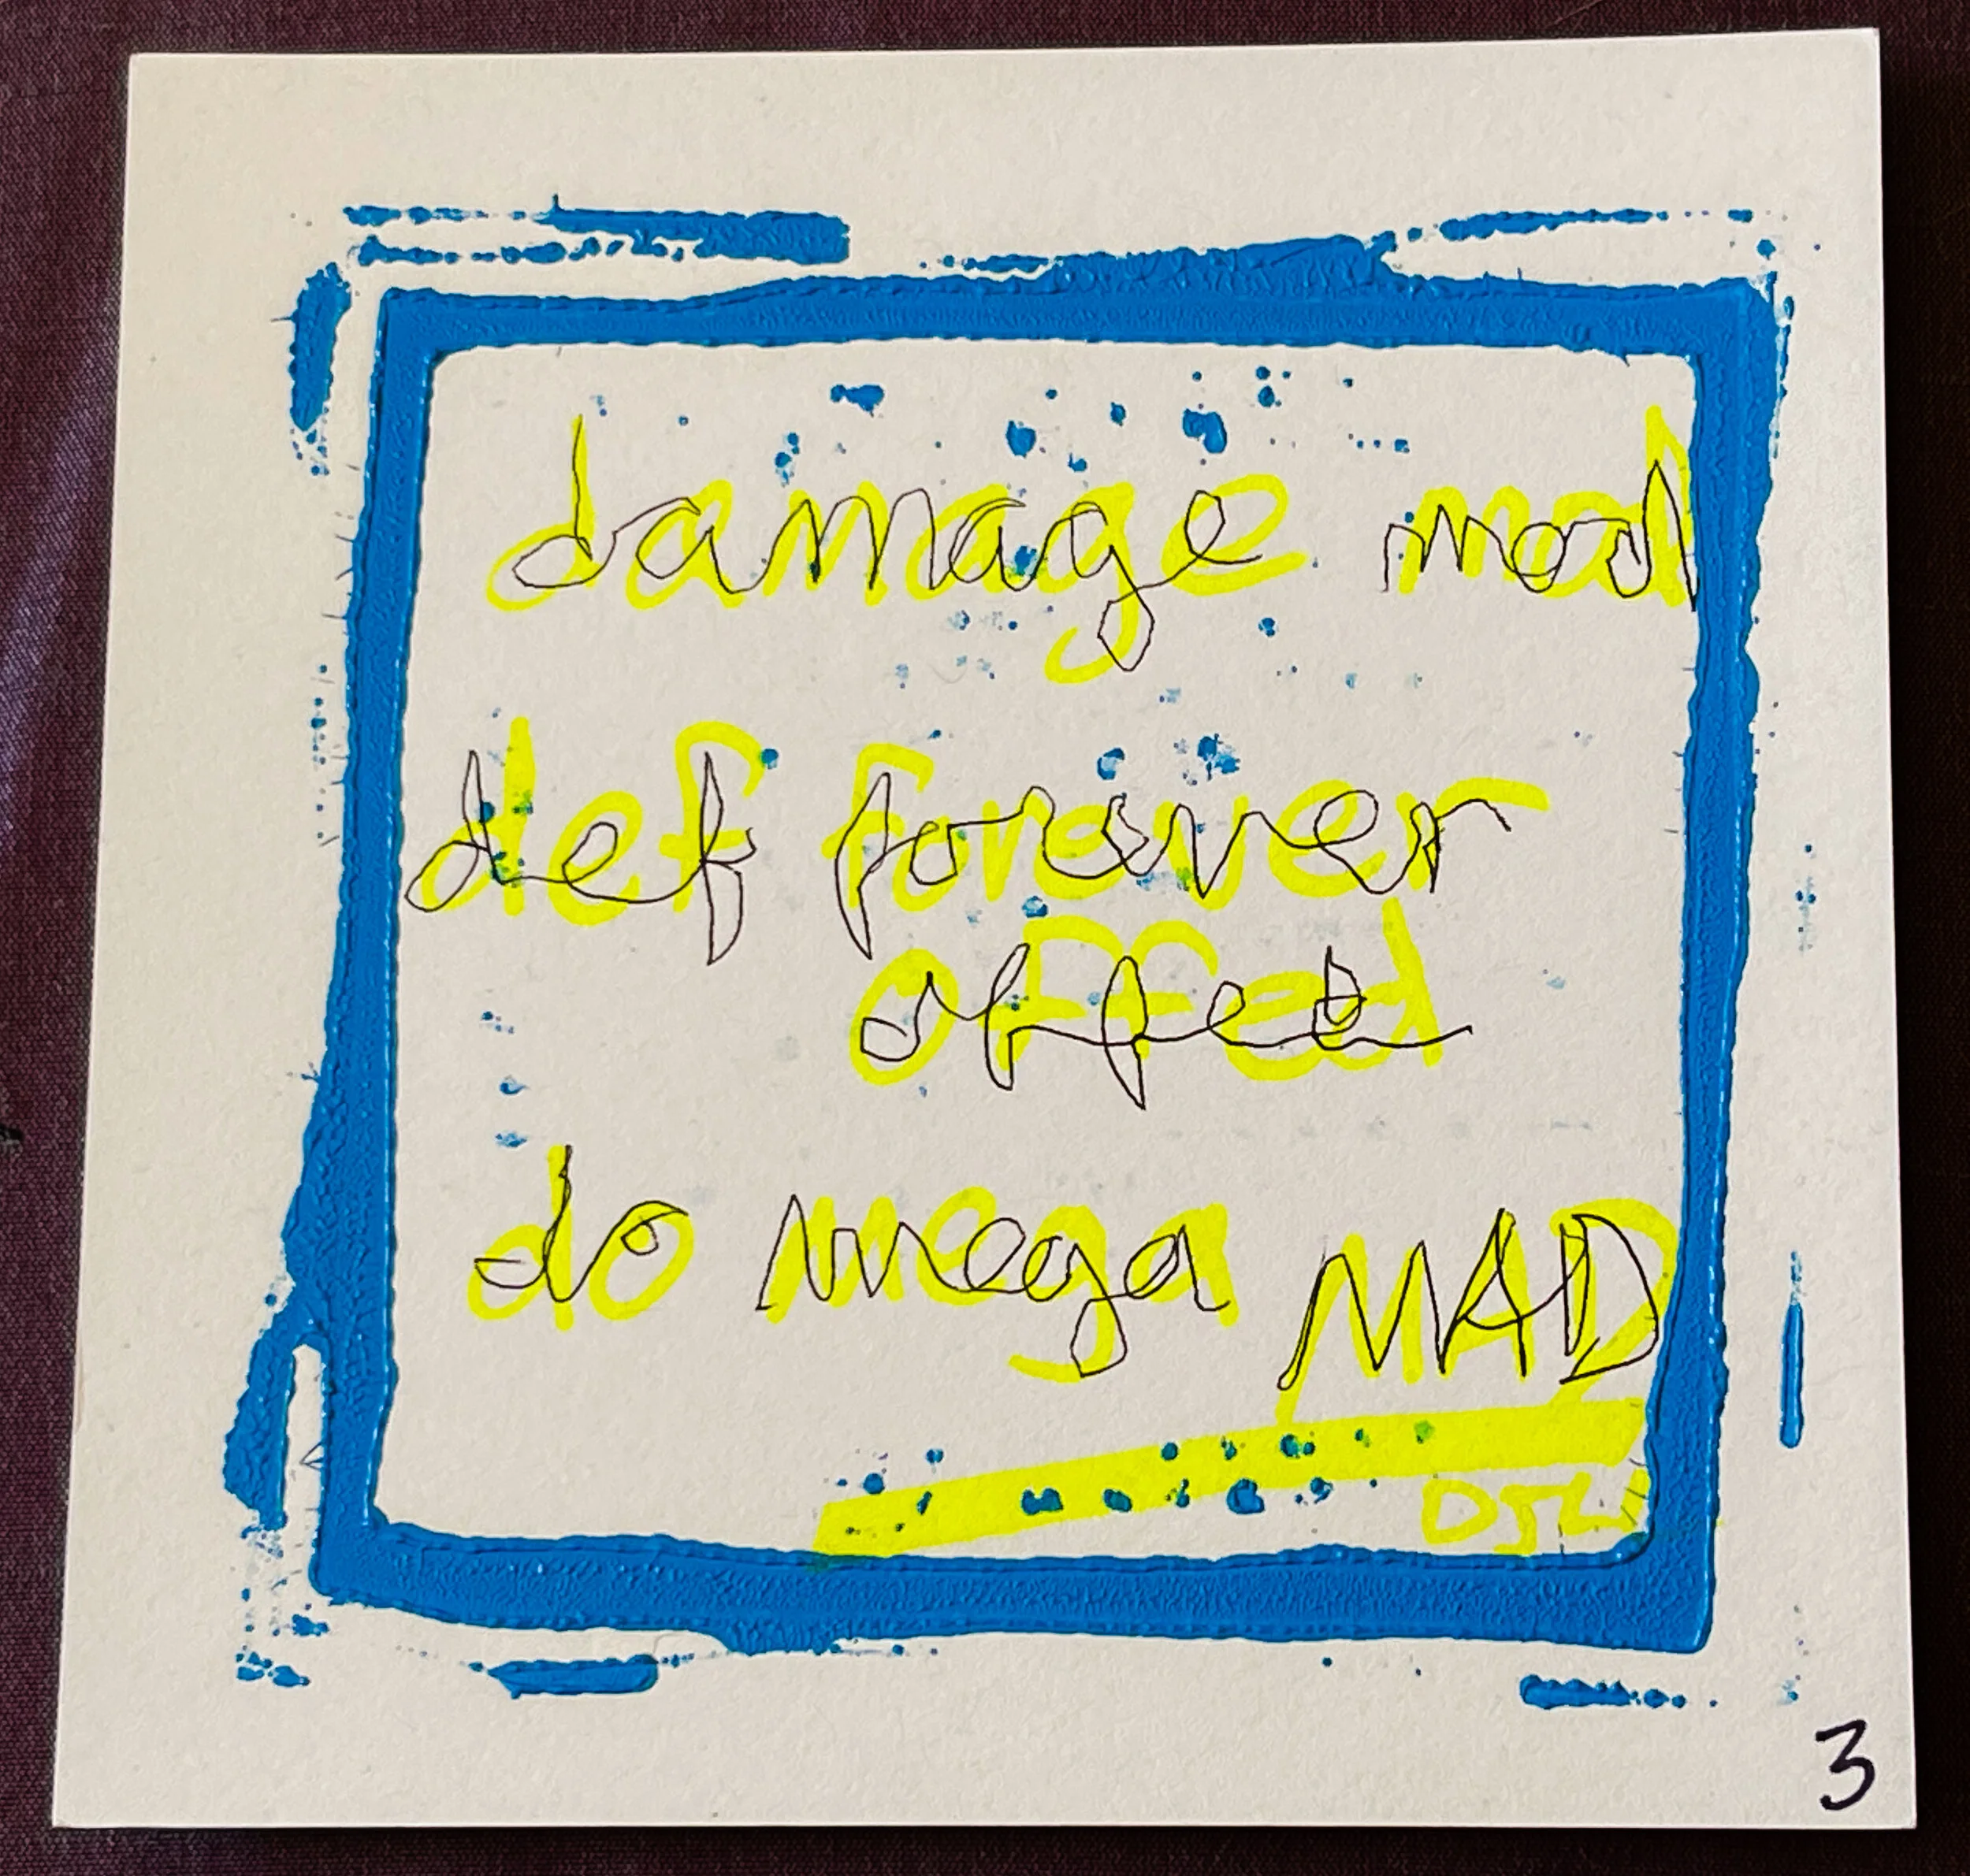 damage mod
def forever
offed
do mega MAD
3